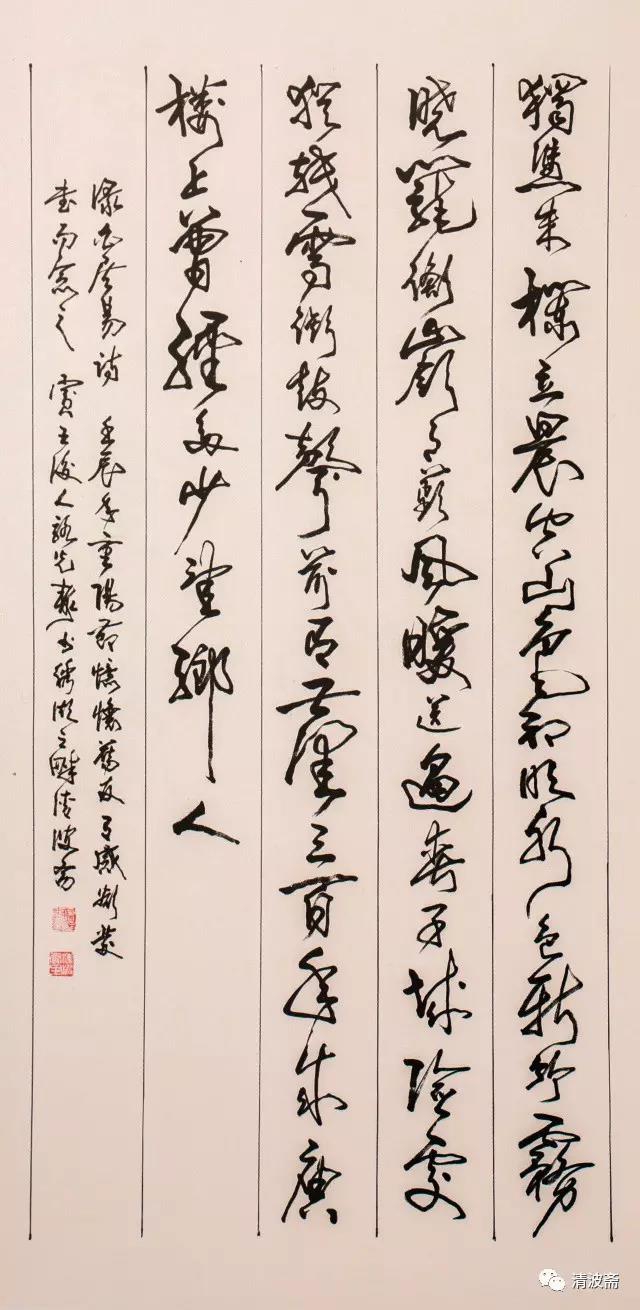 獨憑朱欄立晨空山色初明水色新竹霧
曉籠銜嶺月蘋風暖送過春子城陰處
猶殘雪衙鼓聲前塵三百年來庾
樓上曾經多少望鄉人
錄白居易詩 壬辰年重陽節憶懷舊友有感
書而念之 賓王後人駱先書於繡湖之畔清波齋
清波斋